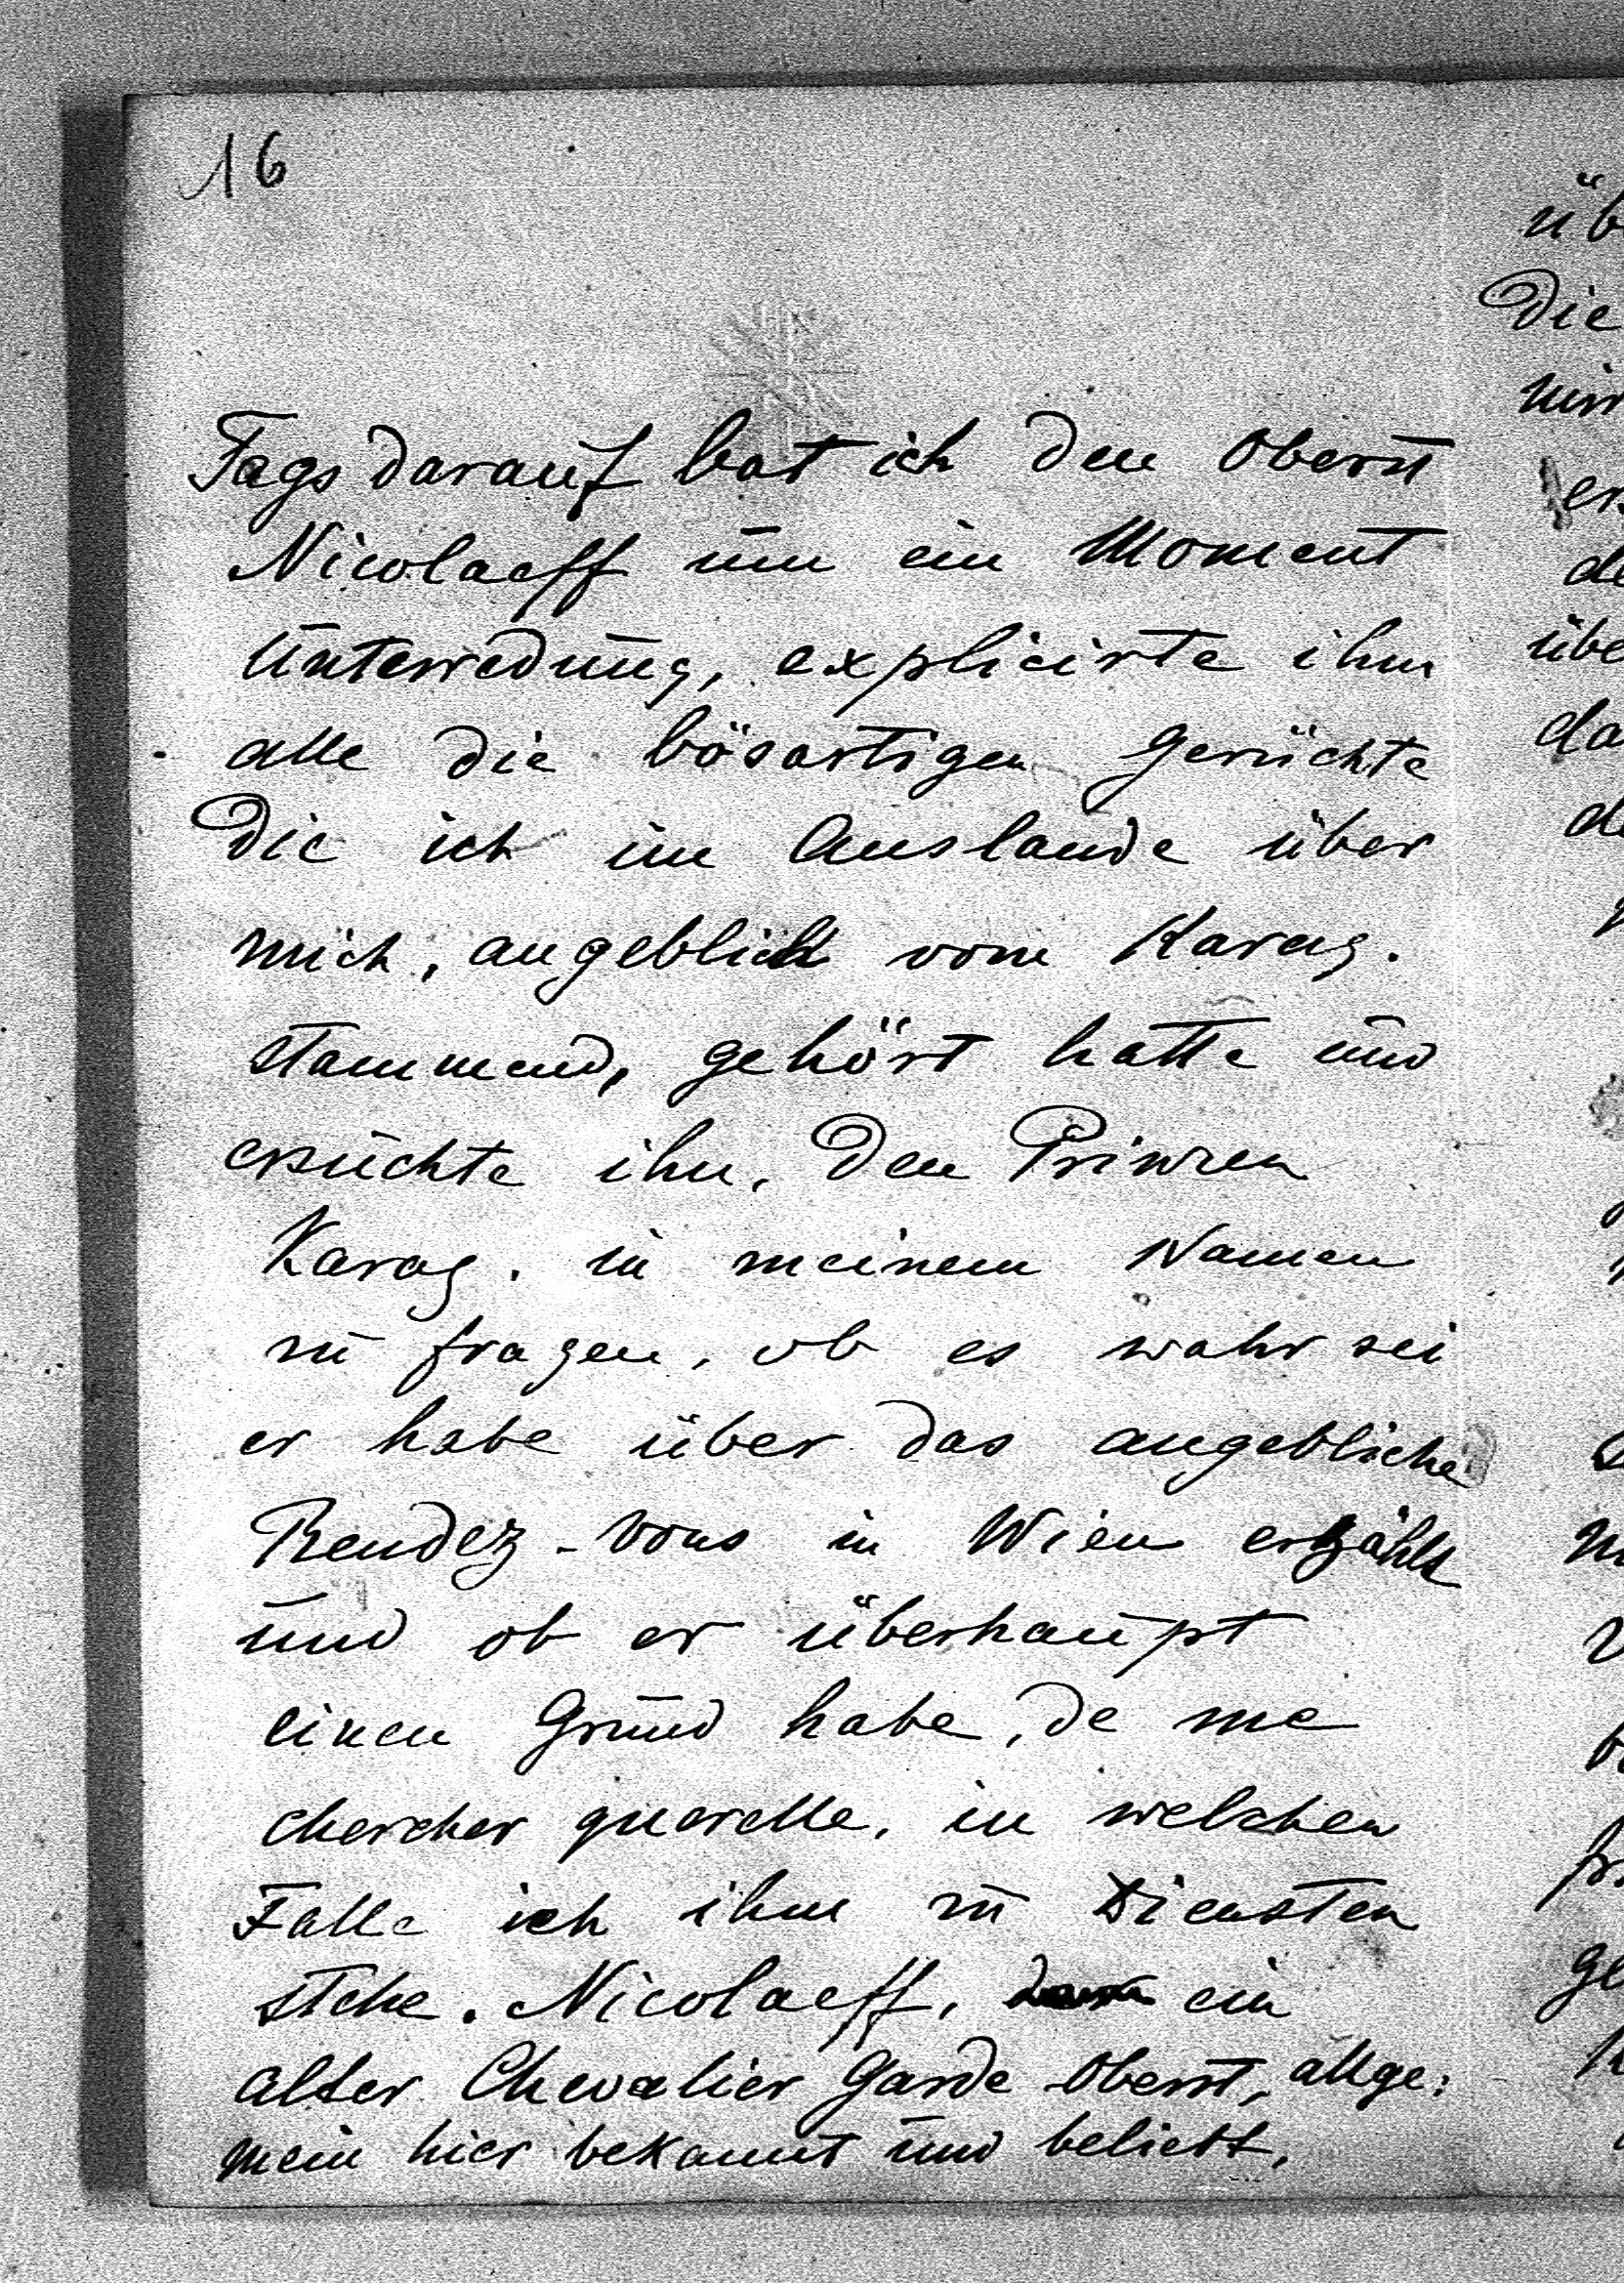 16
Tags darauf bat ich den Oberst
Nicolaeff um ein Moment
Unterredung, explicirte ihm
alle die bösartigen Gerüchte
die ich im Auslande über
mich, angeblich vom Karag.
stammend, gehört hatte und
ersuchte ihn, den Prinzen
Karag. in meinem Namen
zu fragen, ob es wahr sei
er habe über das angebliche
Rendez-vous in Wien erzählt
und ob er überhaupt
einen Grund habe, de me
chercher querelle, in welchen
Falle ich ihm zu Diensten
stehe. Nicolaeff, ein
alter Chevalier Garde Oberst, allge:
mein hier bekannt und beliebt,
üb
Die
er
übe
da
ge